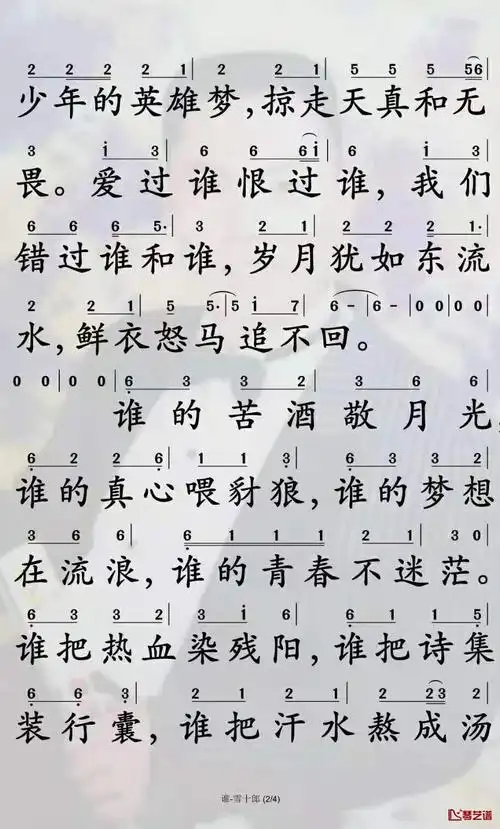 2 2 2 2 2 1 | 2 2 2 1 | 5 5 5 56
少年的英雄梦，掠走天真和无
3 i 3 | 6 6 6i | i 3 |
畏。爱过谁恨过谁，我们
6 6 6 5· | 3 2 1 | 2 2 2 1· |
错过谁和谁，岁月犹如东流
2 2 1 | 5 5 5· 5 | i 7 | 6 - | 6 - | 0 0 | 0 0 |
水，鲜衣怒马追不回。
0 0 | 0 0 | 6 3 3 2 | 3 6 6
谁的苦酒敬月光，
6 2 2 6 | 1 1 3 | 6 3 3 2 |
谁的真心喂豺狼，谁的梦想
3 6 6 | 6 1 1 1 | 2 1 | 3 0 |
在流浪，谁的青春不迷茫。
6 3 3 2 | 3 i 6 | 6 1 1 5 |
谁把热血染残阳，谁把诗集
6 6 3 | 2 1 2 1 | 2 23 |
装行囊，谁把汗水熬成汤
谁-雪十郎 (2/4)
琴艺谱